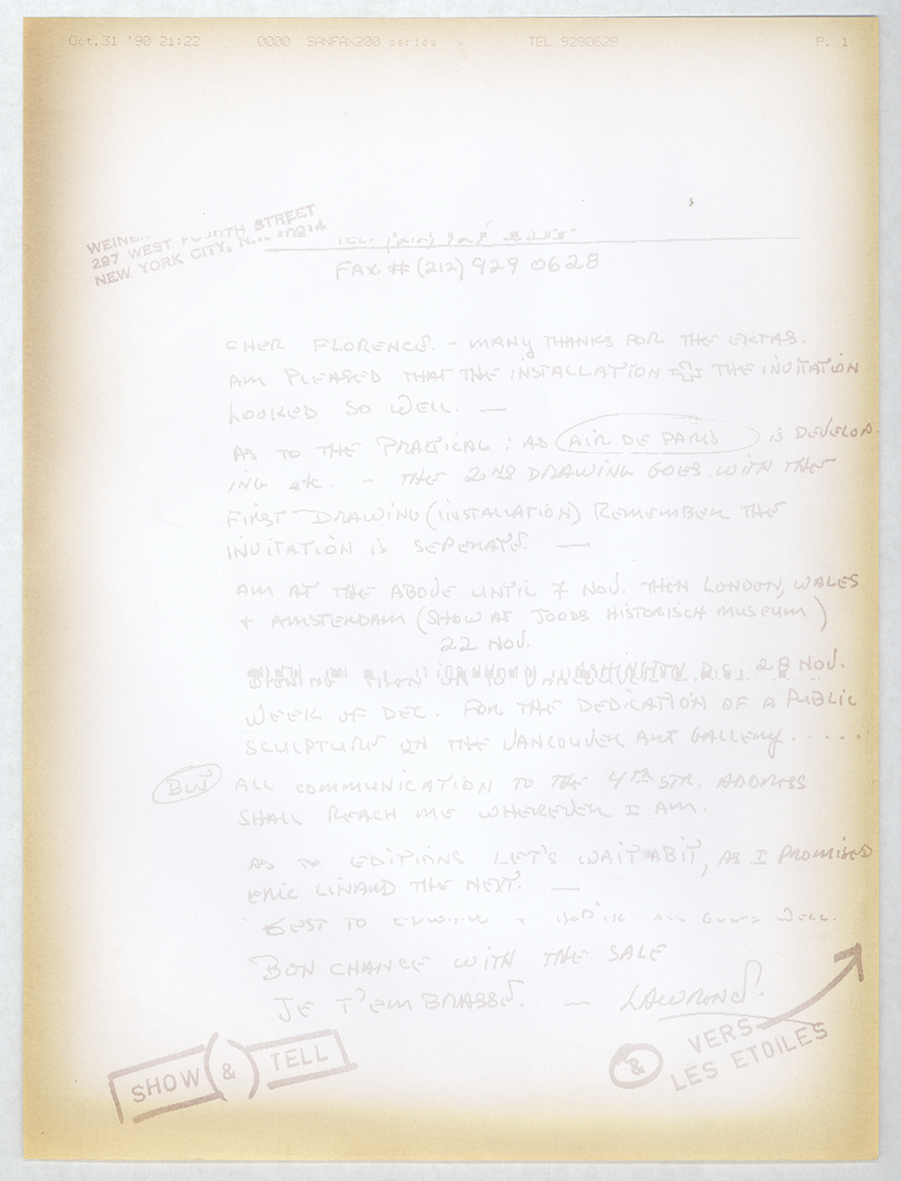 Oct.31 '90 21:22 0000 SANFAX200 series TEL 9290628 P. 1
297 WEST FOURTH STREET
NEW YORK CITY, N.Y. 10014
TEL.
FAX # (212) 929 0628
CHER FLORENCE. - MANY THANKS FOR THE EKTAS.
AM PLEASED THAT THE INSTALLATION & THE INVITATION
LOOKED SO WELL. —
AS TO THE PRACTICAL: AS AIR DE PARIS IS DEVELOP-
ING etc. - THE 2ND DRAWING GOES WITH THE
FIRST DRAWING (INSTALLATION) REMEMBER THE
INVITATION IS SEPERATE. —
AM AT THE ABOVE UNTIL 7 NOV. THEN LONDON, WALES
+ AMSTERDAM (SHOW AT JOODS HISTORISCH MUSEUM)
22 NOV.
WASHINGTON D.C. 28 NOV.
WEEK OF DEC. FOR THE DEDICATION OF A PUBLIC
SCULPTURE ON THE VANCOUVER ART GALLERY.....
BUT ALL COMMUNICATION TO THE 4TH STR. ADDRESS
SHALL REACH ME WHEREVER I AM.
AS TO EDITIONS LET'S WAIT ABIT, AS I PROMISED
ERIC LINARD THE NEXT. —
BEST TO + WELL.
BON CHANCE WITH THE SALE
JE T'EMBRASSE. — LAWRENCE
SHOW (&) TELL
& VERS
LES ETOILES